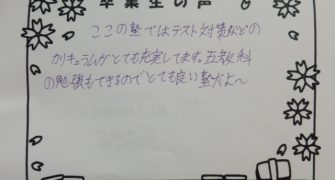 卒業生の声
ここの塾ではテスト対策などの
カリキュラムがとても充実してます。五教科
の勉強もできるのでとても良い塾だよ～